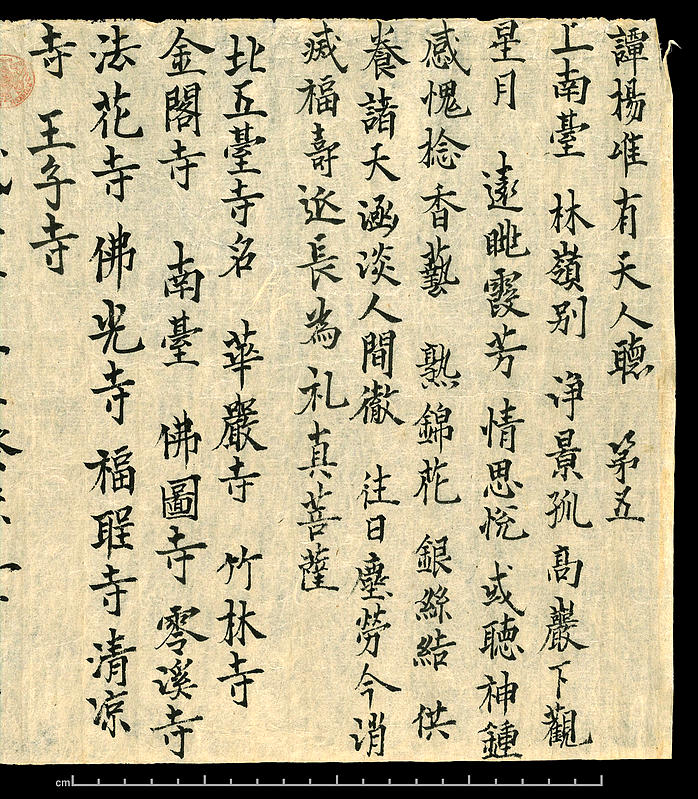 譚楊唯有天人聽　第五
上南臺　林嶺别　浄景孤高巖下觀
星月　遠眺霞芳　情思恱　或聴神鍾
感愧捻香藝　熟錦花　銀絲結　供
養諸天涵淡人間徹　往日塵勞今消
滅福壽延長為礼真菩薩
北五臺寺名　華巖寺　竹林寺
金閣寺　南臺　佛圖寺　零溪寺
法花寺　佛光寺　福聖寺　清凉
寺　王子寺